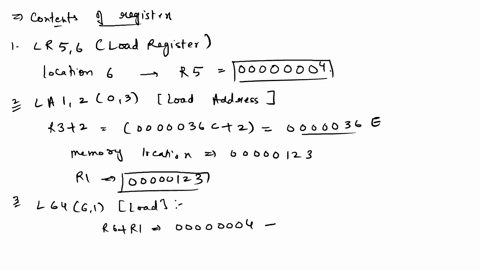 ⇒ Contents of register
1. LR 5,6 (Load Register)
location 6 → R5 = 00000004.
2 LA 1, 2 (0,3) [Load Address]
R3+2 = (0000036C+2) = 0000036 E
memory location ⇒ 00000123
R1 ⇒ 00000123
3 L 6 4 (6,1) [Load] :-
R6+R1 ⇒ 00000004 -